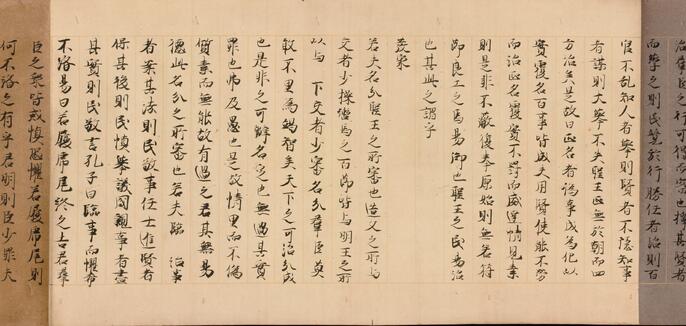 治群臣之行可得而察也擇其賢者
而舉之則民競於行勝任者治則百
官不乱知人者舉則賢者不隱知事
者謀則大舉不失聖王正言於朝而四
方治矣是故曰正名者偽事成若化以
實覆名百事皆成夫用賢使能不勞
而治正名覆實不罰而威達情見素
則是非不蔽復本原始則言若符
節良工之馬易御也聖王之民易治
也其此之謂乎
發蒙
若夫名分聖王之所審也造父之所与
交者少操轡馬之百節皆与明王之所
以与下交者少審名分群臣莫
敢不尽力竭智矣天下之可治分成
也是非之可辨名定也無過其實
罪也弗及愚也是故情尽而不偽
質素而無巧故有道之君其無易
聴此名分之所審也若夫臨治事
者案其法則民敬事任士進賢者
保其後則民慎舉議國親事者盡
其實則民敬言孔子曰臨事而懼希
不濟易曰若履虎尾終之吉若群
臣之衆皆戒慎恐懼若履虎尾則
何不濟之有乎君明則臣少罪夫